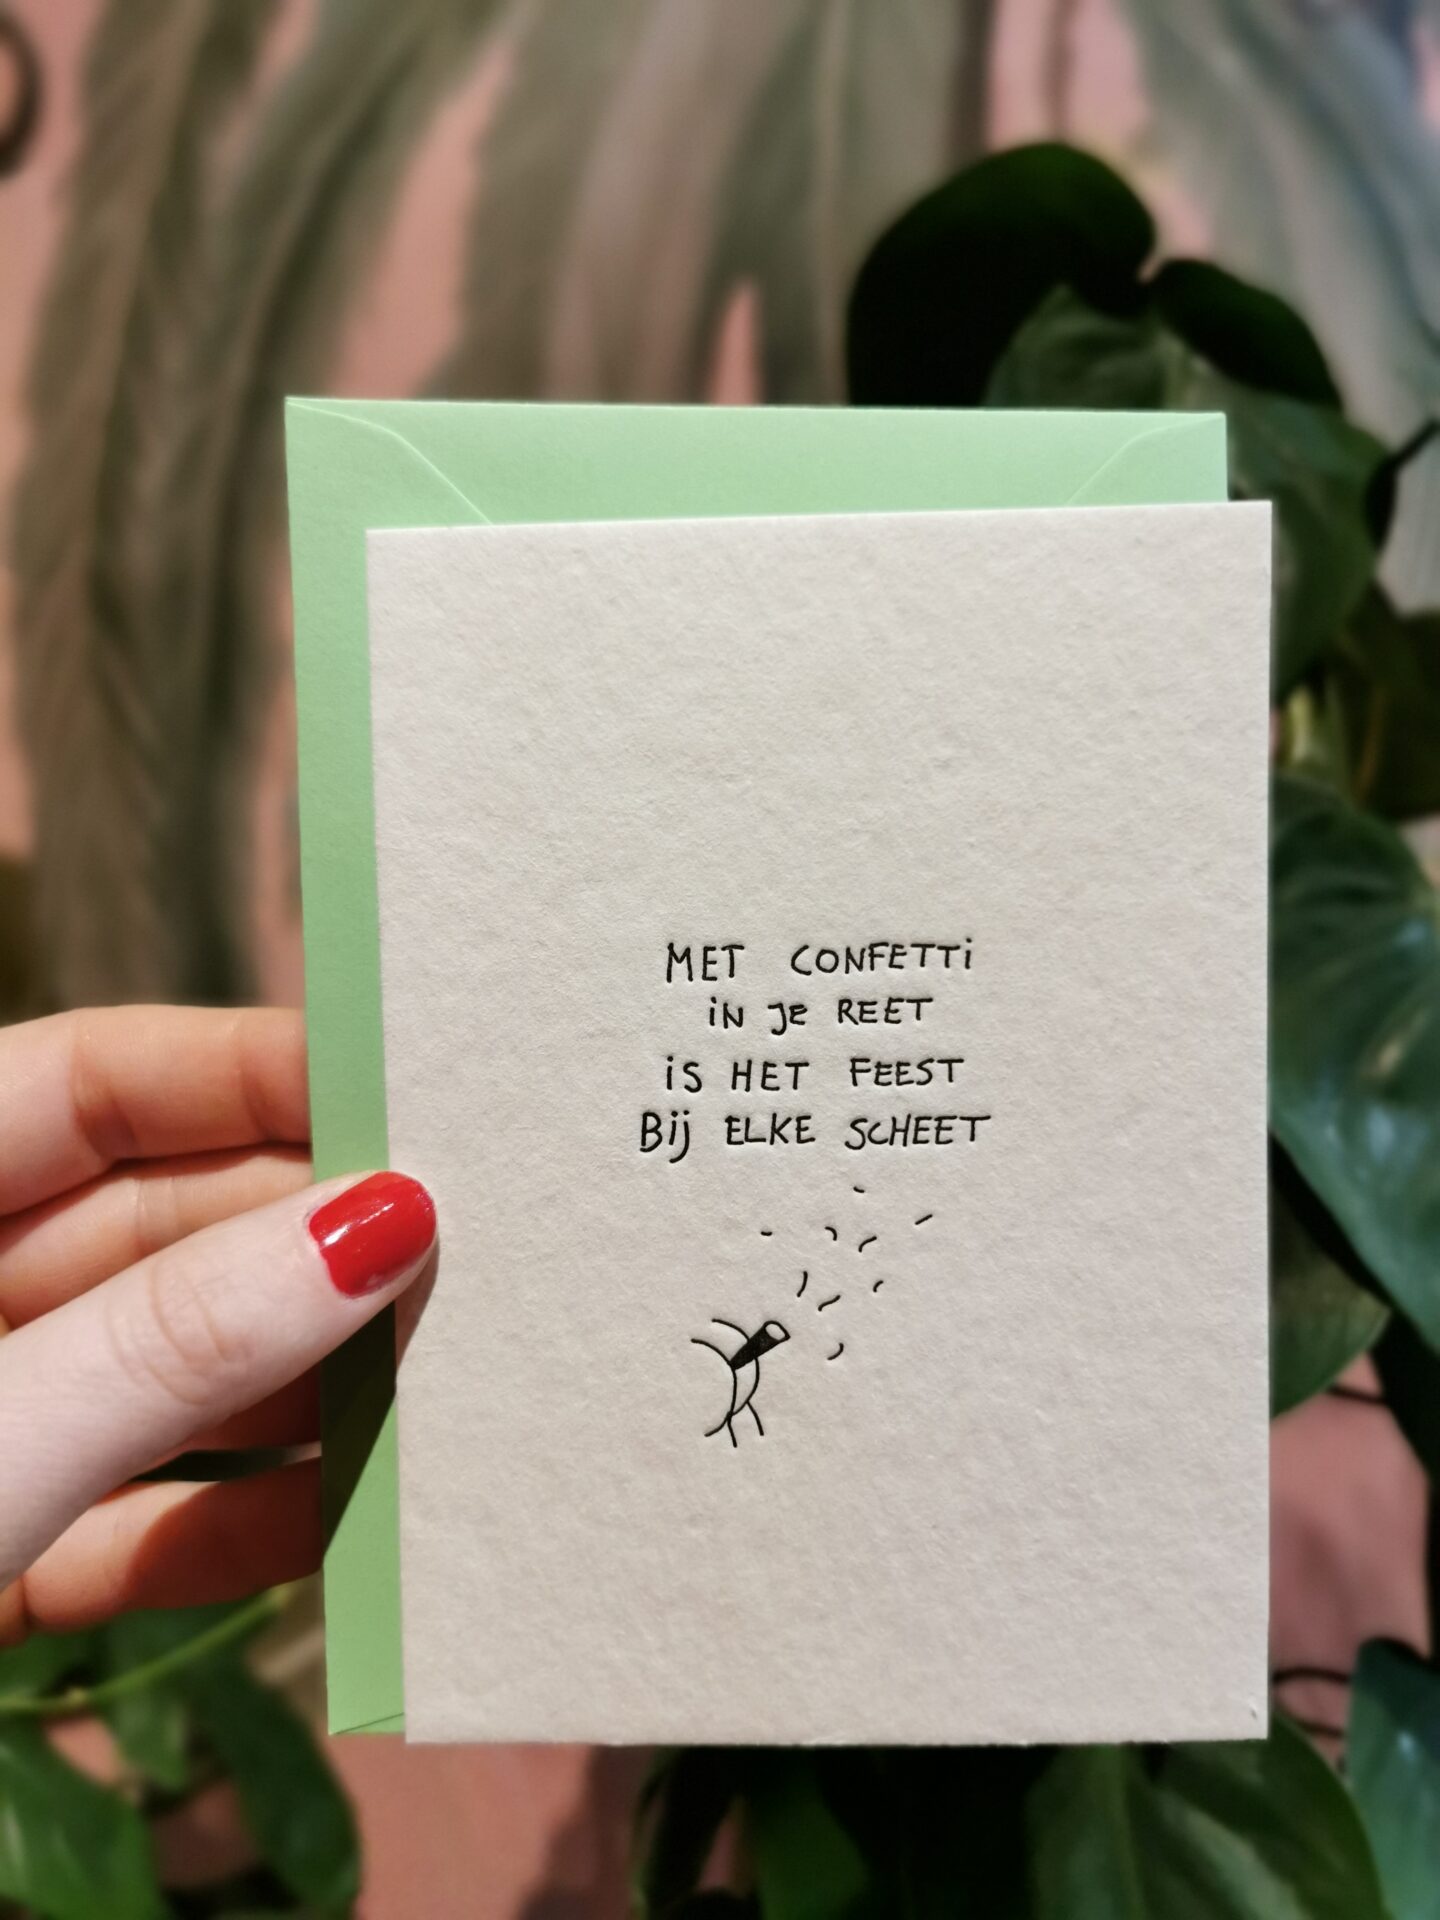 MET CONFETTi
iN Je REET
iS HET FEEST
Bij ELKE SCHEET